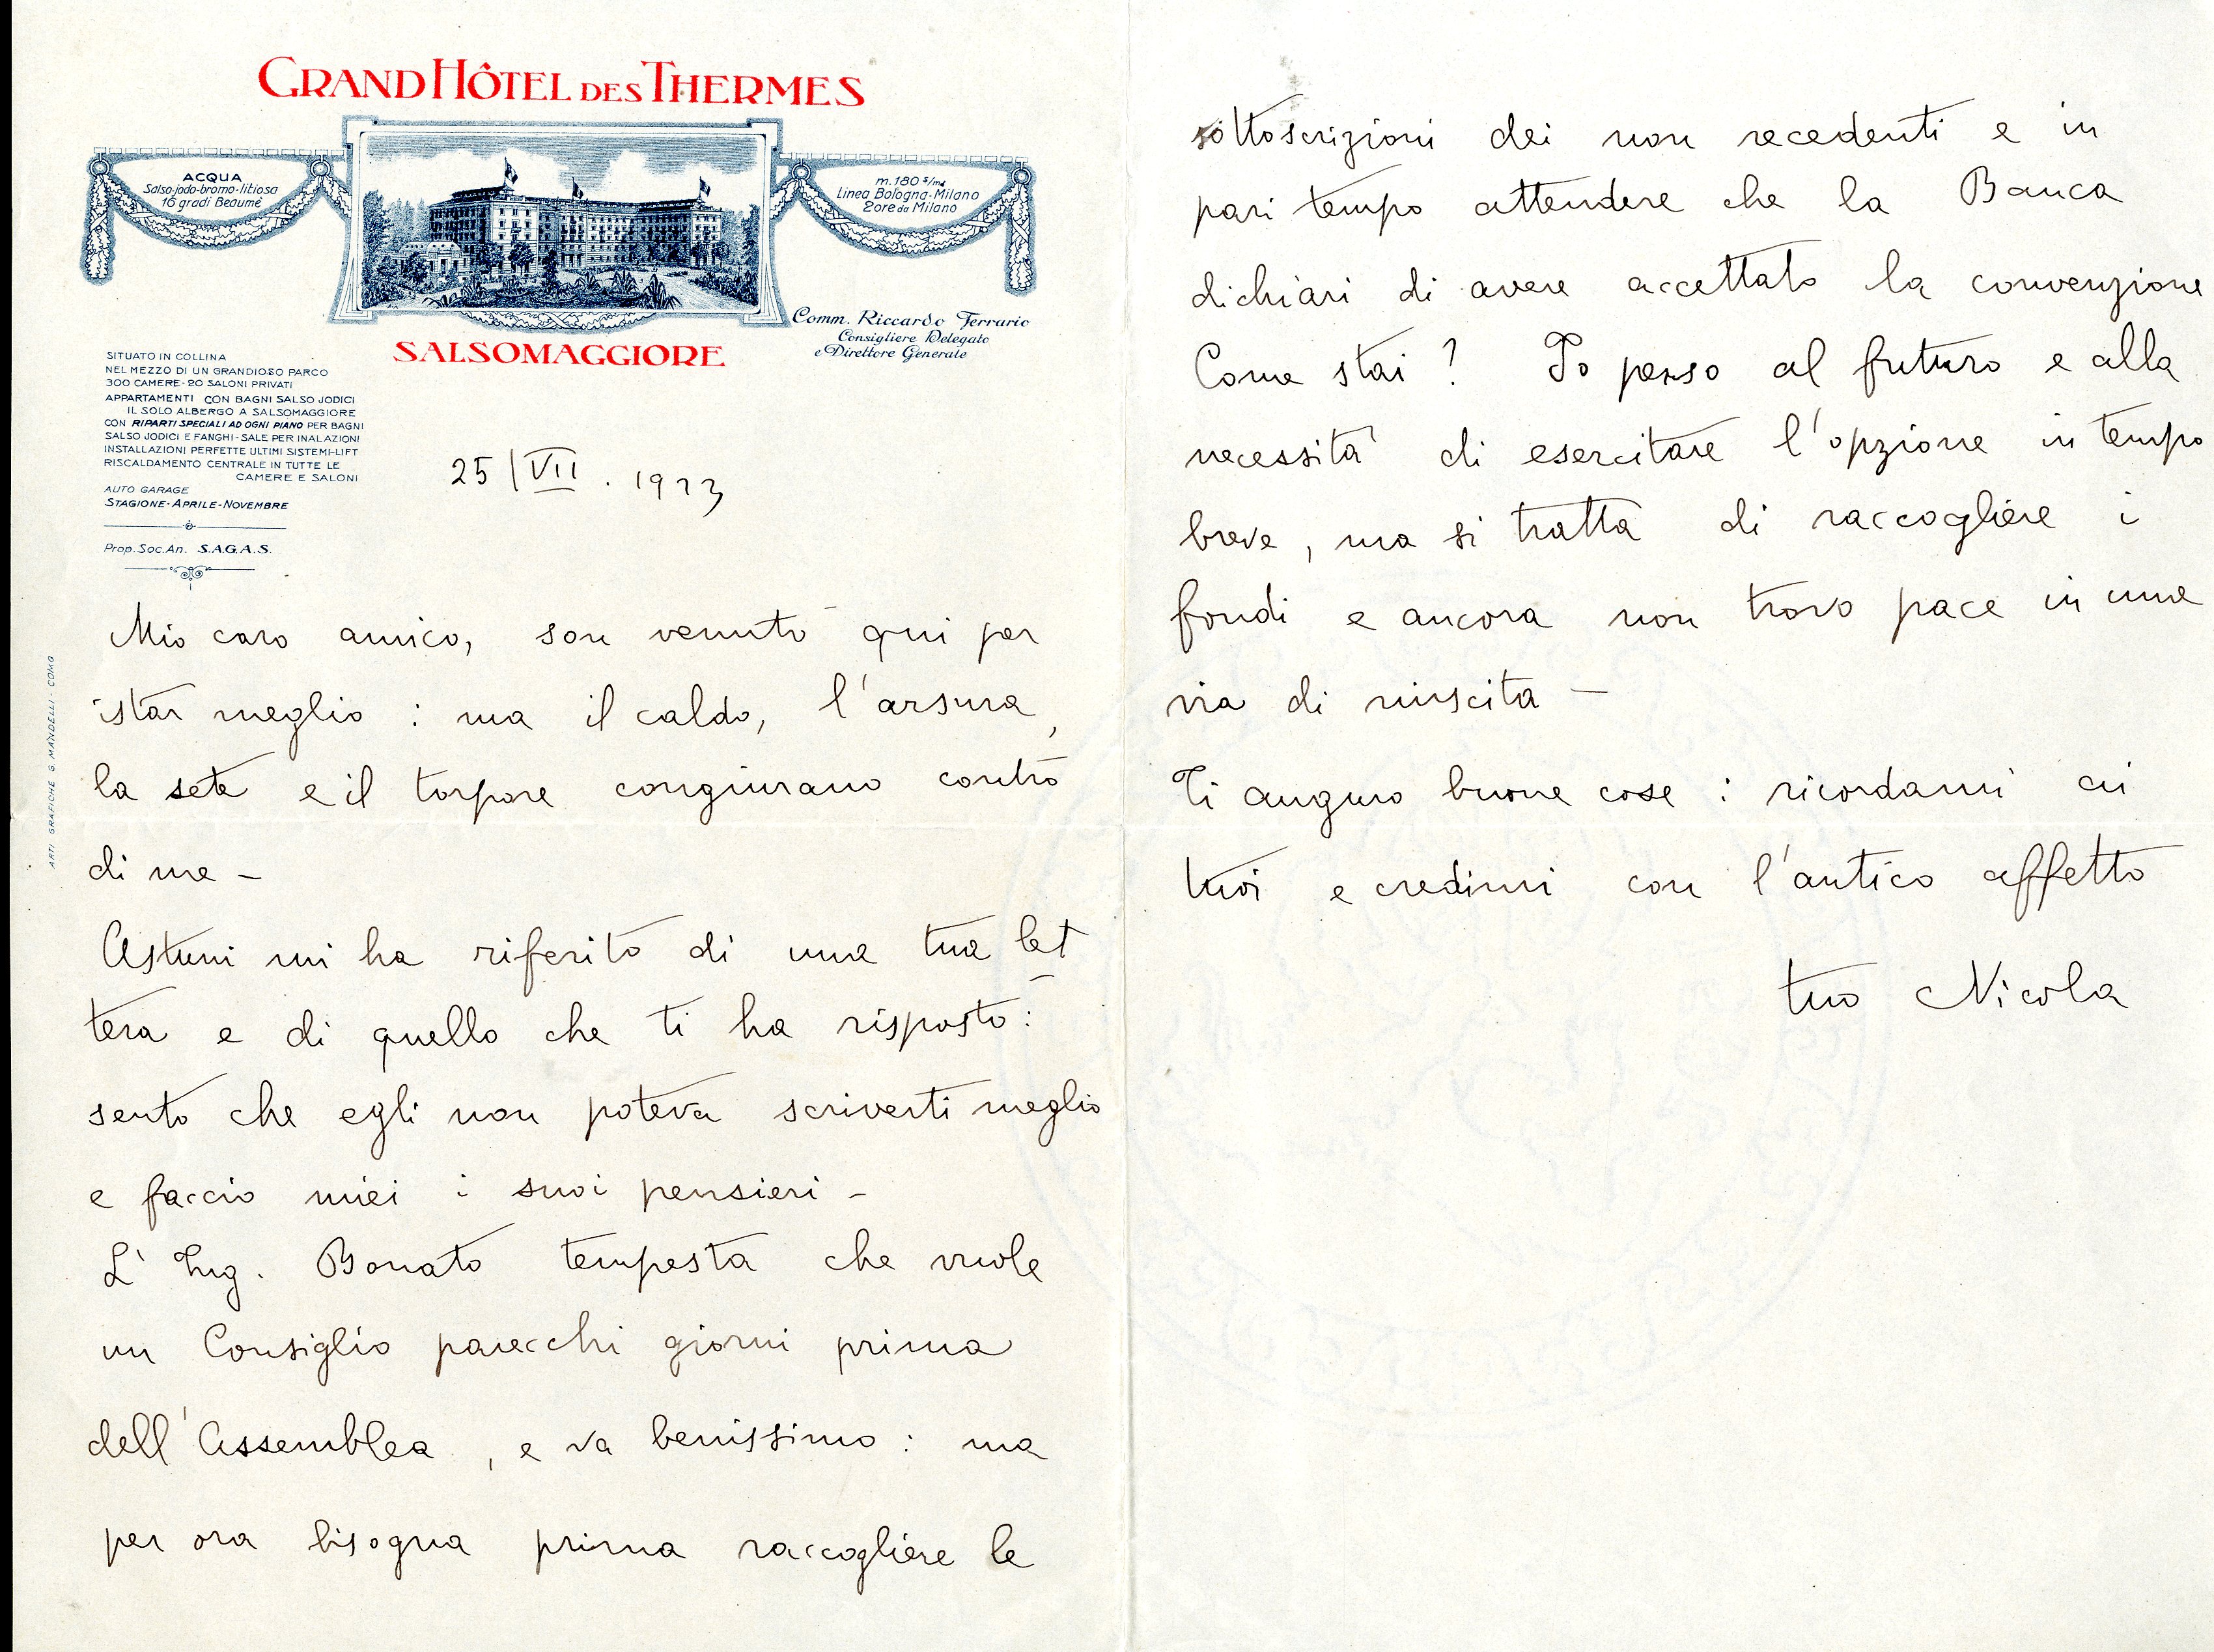 GRAND HÔTEL DES THERMES
ACQUA
Salso-jodo-bromo-litiosa
16 gradi Beaumè
m. 180 s/m
Linea Bologna-Milano
2 ore da Milano
Comm. Riccardo Ferrario
Consigliere Delegato
e Direttore Generale
SALSOMAGGIORE
SITUATO IN COLLINA
NEL MEZZO DI UN GRANDIOSO PARCO
300 CAMERE - 20 SALONI PRIVATI
APPARTAMENTI CON BAGNI SALSO JODICI
IL SOLO ALBERGO A SALSOMAGGIORE
CON RIPARTI SPECIALI AD OGNI PIANO PER BAGNI
SALSO JODICI E FANGHI - SALE PER INALAZIONI
INSTALLAZIONI PERFETTE ULTIMI SISTEMI - LIFT
RISCALDAMENTO CENTRALE IN TUTTE LE
CAMERE E SALONI
AUTO GARAGE
STAGIONE - APRILE - NOVEMBRE
Prop. Soc. An. S.A.G.A.S.
ARTI GRAFICHE G. MANDELLI - COMO
25 | VII . 1923
Mio caro amico, son venuto qui per
star meglio : ma il caldo, l'arsura,
la sete e il torpore congiurano contro
di me –
Astuni mi ha riferito di una tua let
tera e di quello che ti ha risposto :
sento che egli non poteva scriverti meglio
e faccio miei i suoi pensieri –
L' Ing. Bonato tempesta che vuole
un Consiglio parecchi giorni prima
dell'Assemblea , e va benissimo : ma
per ora bisogna prima raccogliere le
sottoscrizioni dei non recedenti e in
pari tempo attendere che la Banca
dichiari di avere accettato la convenzione
Come stai ? Io penso al futuro e alla
necessità di esercitare l'opzione in tempo
breve , ma si tratta di raccogliere i
fondi e ancora non trovo pace in una
via di riuscita –
Ti auguro buone cose : ricordami ai
tuoi e credimi con l'antico affetto
tuo Nicola